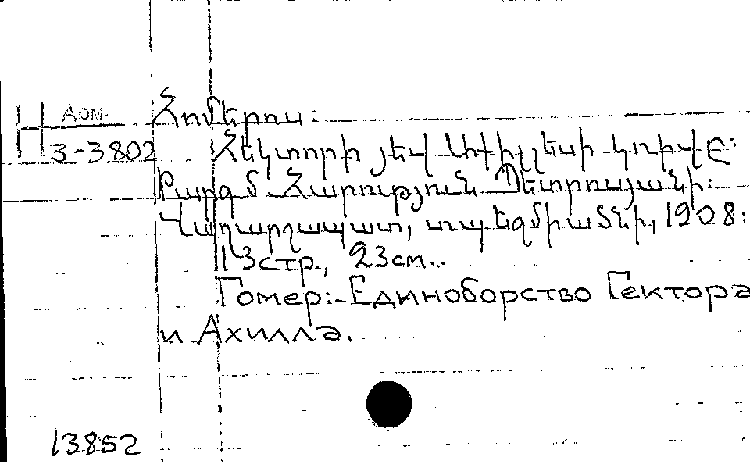 Арм.
H 3-3802
Հոմերոս:
Հեկտորի յեվ Աքիլլեսի կռիվը:
Թարգմ. Հարություն Պետրոսյանի:
Վաղարշապատ, տպ. Եզմիածնի, 1908:
13 стр., 23 см..
Гомер:- Единоборство Гектора
и Ахилла.
13852